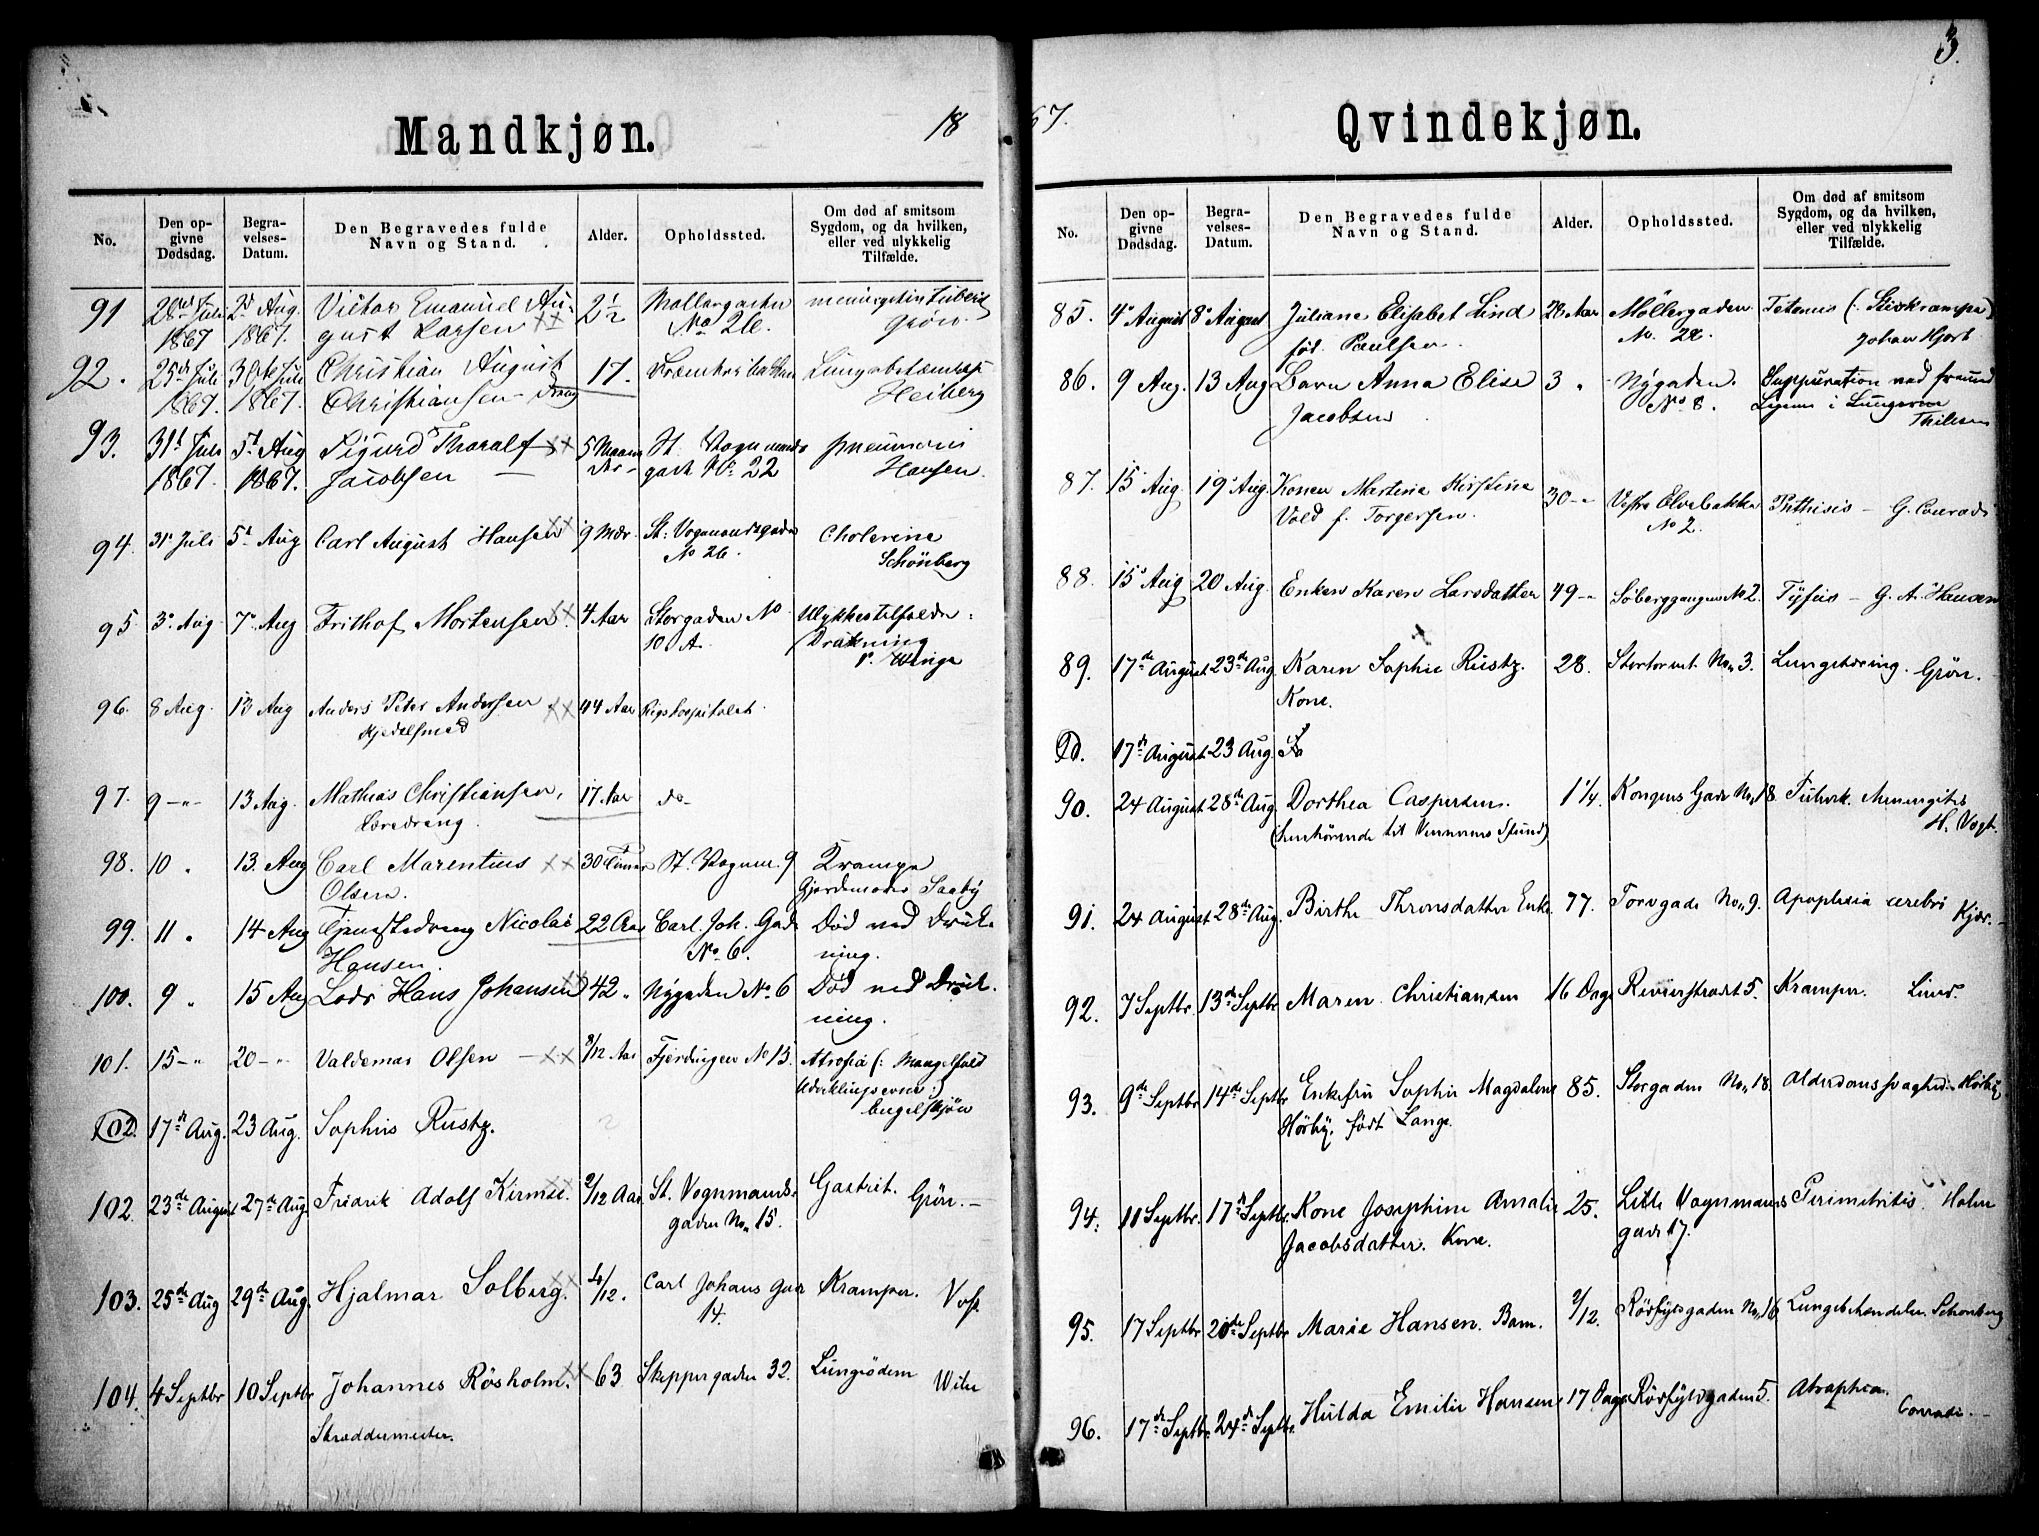 3.
Mandkjøn.
18
67.
Qvindekjøn.
No.
Den op-
givne
Dødsdag.
Begra-
velses-
Datum.
Den Begravedes fulde
Navn og Stand.
Alder.
Opholdssted.
Om død af smitsom
Sygdom, og da hvilken,
eller ved ulykkelig
Tilfælde.
91 28de Juli 2d Aug. Victor Emanuel Au- 2½ Møllergaden
1867 1867. gust Larsen No 26. Grön.
92. 25de Juli 30te Juli Christian August 17.
1867. 1867. Christiansen Dreng Heiberg
93. 31t Juli 5t Aug Sigurd Tharalf 5 Maane St. Vognmands pneumoni
1867. 1867. Jacobsen der gade No 22 Hansen.
94. 31t Juli 5t Aug Carl August Hansen 9 Mdr. St: Vognmandsgaden Cholerine
No 26. Schönberg
95 3. Aug 7. Aug Frithof Mortensen 4 Aar Storgaden No Ulykkestilfælde:
10 A. Drukning
Winge
96. 8 Aug. 13 Aug Anders Peter Andersen 44 Aar Rigshospitalet
Kjedelsmed
97. 9 -"- 13 Aug. Mathias Christiansen, 17 Aar do-
Læredreng.
98. 10 " 13. Aug Carl Marentius 30 Timer St. Vognm. 9 Krampe
Olsen. Gjordemoder Saaby
99. 11 " 14 Aug Tjenestedreng Nicolai 22 Aar Carl. Joh. Gade Død ved Druk
Hansen. No. 6. ning.
100. 9 " 15 Aug Lods Hans Johansen 42 " Nygaden No. 6 Død ved Druk.
ning.
101. 15 -"- 20 -"- Valdemar Olsen 3/12 Aar Fjerdingen No 13 Atrofia (: Mangelfuld
Udviklingsevne :)
Engelskjön
102. 17de Aug. 23 Aug. Sophus Rustz.
102. 23de August 27de Aug. Fredrik Adolf Kirmse. 2/12 Aar St. Vognmands- Gastrit. Grön. -
gaden No. 15.
103. 25de Aug 29de Aug. Hjalmar Solberg. 4/12. Carl Johans Gade Kramper. Voss
14.
104. 4 Septbr 10 Septbr Johannes Røsholm. 63 Skippergaden 32. Lungeödem
Skræddermester.
No.
Den op-
givne
Dødsdag.
Begra-
velses-
Datum.
Den Begravedes fulde
Navn og Stand.
Alder.
Opholdssted.
Om død af smitsom
Sygdom, og da hvilken,
eller ved ulykkelig
Tilfælde.
85. 4. August 8. August Juliane Elisabet Lind 28 Aar Möllergaden Tetanus (: Stivkrampe)
föd. Paulsen. No. 28. Johan Hjort
86. 9 Aug. 13 Aug Barn Anna Elise 3 " Nygaden. Suppuration ved fremmed
Jacobsen No. 8. Legeme i Lungerne
Thilesen
87. 15 Aug. 19. Aug Konen Martine Kirstine 30 -"- Vestre Elvebakke Phthisis - G. Conradi
Vold f. Torgersen. No 2.
88. 15 Aug 20 Aug. Enken Karen Larsdatter 49 -"- Söberggangen No 2. Tyfus - G. A. Hansen
89. 17de August 23de Aug. Karen Sophie Rustz. 28. Stortorvet No. 3. Lungetæring. Grön.
Kone.
90. 17de August 23 Aug.
90. 24 August 28de Aug. Dorthea Caspersen. 1¼. Kongens Gade No. 18 Tuberk. Meningitis
H. Vogt.
91. 24 August 28de Aug. Birthe Thronsdatter Enke 77. Torvgade No. 9. Apoplexia cerebri Kjær. -
92. 7 Septbr. 13de Septbr Maren Christiansen 16 Dage Revierstrædt 5. Kramper.
93. 9de Septbr 14de Septbr Enkefru Sophie Magdalene 85. Storgaden No. 18. Alderdomssvaghed. Hörbye
Hörby. födt Lange.
94. 11 Septbr. 17de Septbr. Kone Josephine Amalie 25. Lille Vognmands Perimetritis. Holm
Jacobsdatter. Kone. gade 17.
95. 17 Septbr 20de Septbr Marie Hansen. Barn. 2/12. Rörfylsgaden No. 16 Lungebetændelse. Schonberg
96. 17de Septbr. 24de Septbr. Hulda Emilie Hansen 17 Dage Rörfylsgaden 5. Atrophia.
Conradi. -